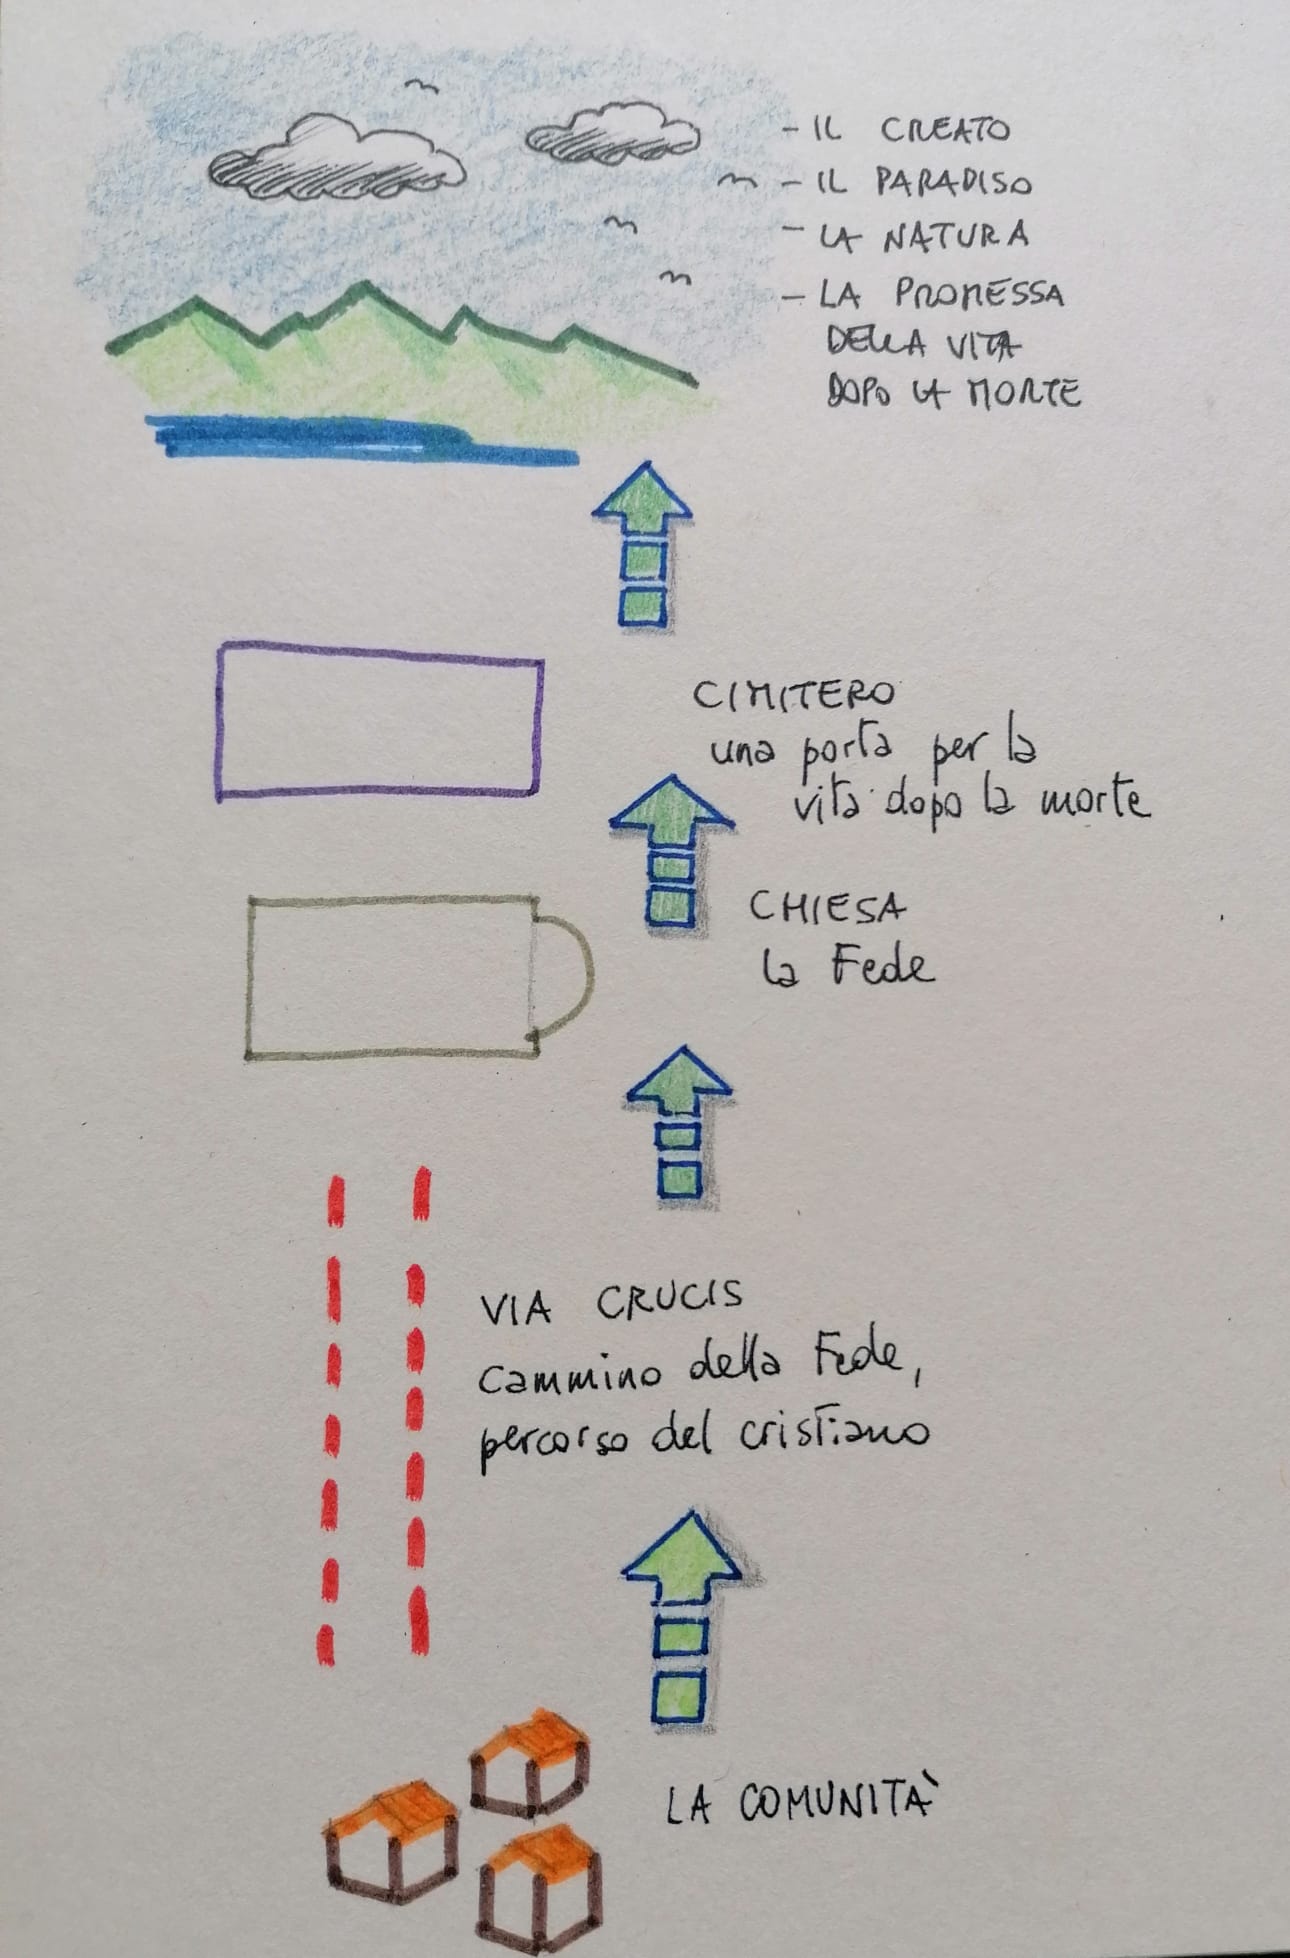 - IL CREATO
- IL PARADISO
- LA NATURA
- LA PROMESSA
DELLA VITA
DOPO LA MORTE
CIMITERO
una porta per la
vita dopo la morte
CHIESA
la Fede
VIA CRUCIS
cammino della Fede,
percorso del cristiano
LA COMUNITÀ